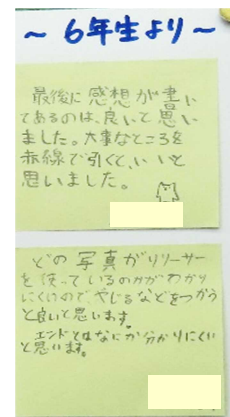 ～6年生より～
最後に感想が書い
てあるのは、良いと思い
ました。大事なところを
赤線で引くと、いいと
思いました。
どの写真がリリーサー
を使っているのかがわかり
にくいのでやじるなどをつかう
と良いと思います。
エンドとはなにか分かりにくい
と思います。